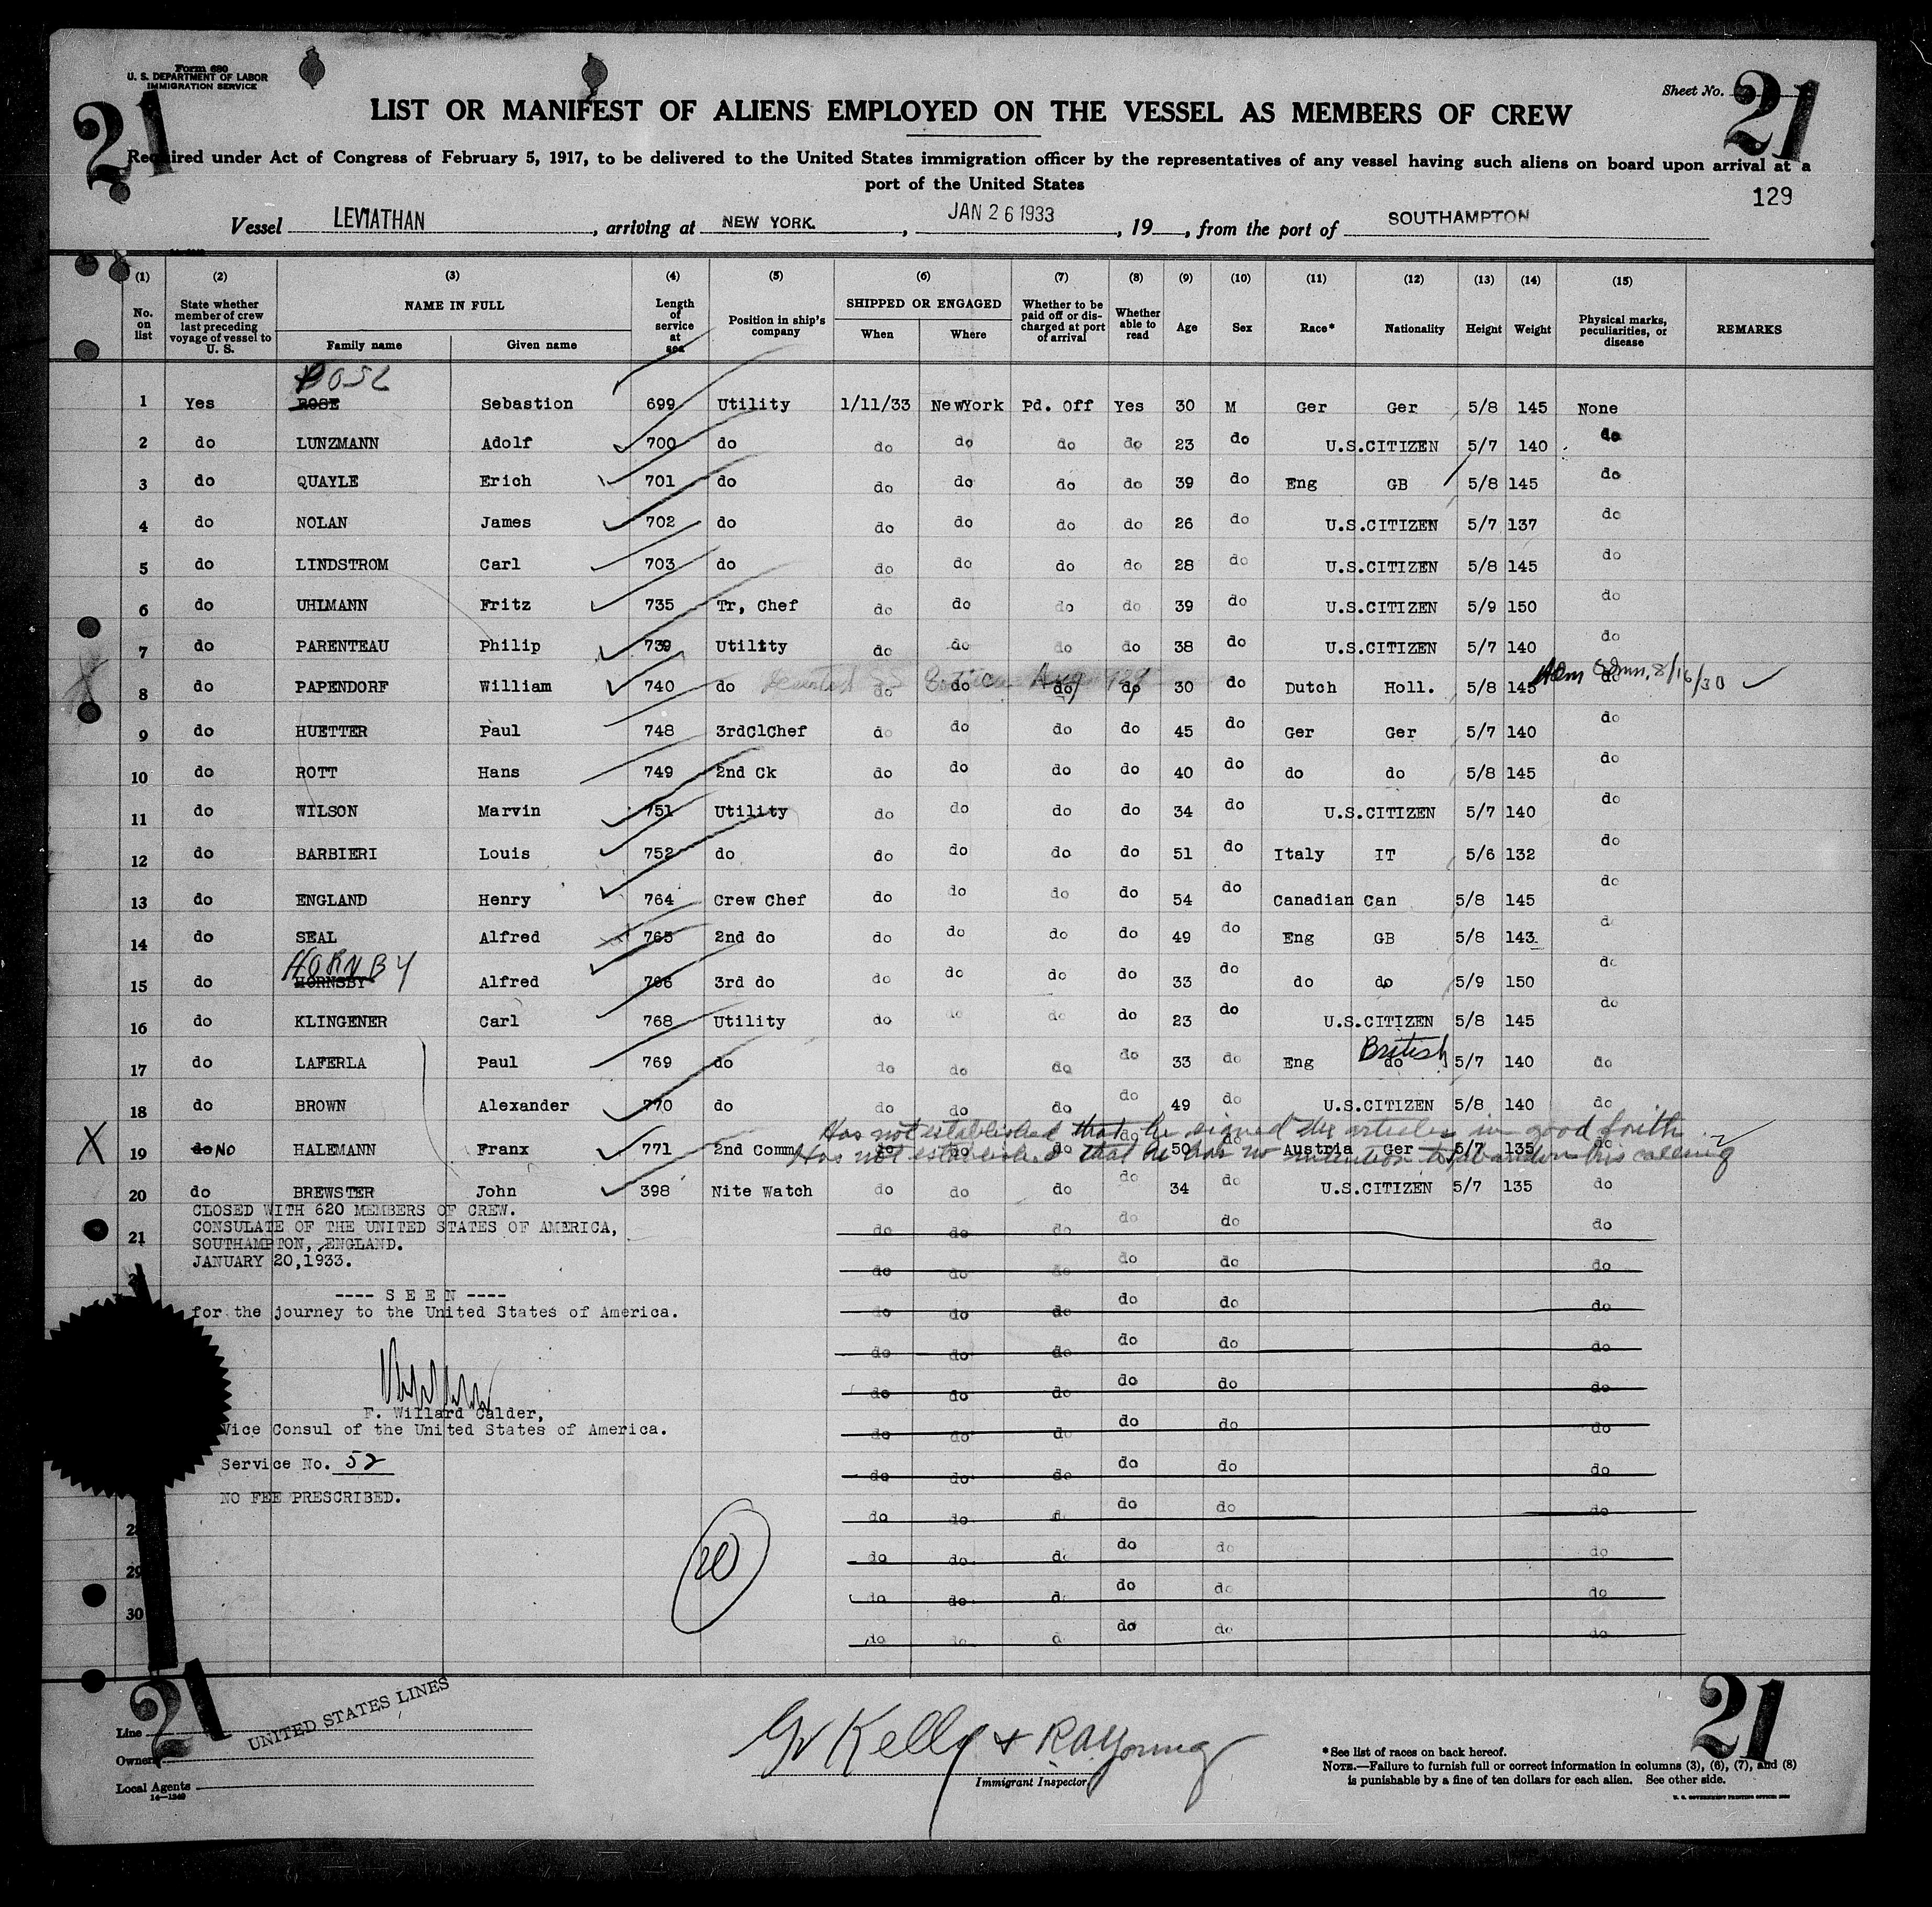 Form 680
U. S. DEPARTMENT OF LABOR
IMMIGRATION SERVICE
Sheet No.
21
21
LIST OR MANIFEST OF ALIENS EMPLOYED ON THE VESSEL AS MEMBERS OF CREW
Required under Act of Congress of February 5, 1917, to be delivered to the United States immigration officer by the representatives of any vessel having such aliens on board upon arrival at a
port of the United States
129
Vessel LEVIATHAN, arriving at NEW YORK, JAN 26 1933, 19, from the port of SOUTHAMPTON
(1) (2) (3) (4) (5) (6) (7) (8) (9) (10) (11) (12) (13) (14) (15)
No. on list State whether member of crew last preceding voyage of vessel to U. S. NAME IN FULL Family name Given name Length of service at sea Position in ship's company SHIPPED OR ENGAGED When Where Whether to be paid off or discharged at port of arrival Whether able to read Age Sex Race* Nationality Height Weight Physical marks, peculiarities, or disease REMARKS
1 Yes ROSE Sebastion 699 Utility 1/11/33 NewYork Pd. Off Yes 30 M Ger Ger 5/8 145 None
2 do LUNZMANN Adolf 700 do do do do do 23 do U.S.CITIZEN 5/7 140 do
3 do QUAYLE Erich 701 do do do do do 39 do Eng GB 5/8 145 do
4 do NOLAN James 702 do do do do do 26 do U.S.CITIZEN 5/7 137 do
5 do LINDSTROM Carl 703 do do do do do 28 do U.S.CITIZEN 5/8 145 do
6 do UHLMANN Fritz 735 Tr, Chef do do do do 39 do U.S.CITIZEN 5/9 150 do
7 do PARENTEAU Philip 739 Utiltty do do do do 38 do U.S.CITIZEN 5/7 140 do
8 do PAPENDORF William 740 do do do do do 30 do Dutch Holl. 5/8 145 do 8/16/30
9 do HUETTER Paul 748 3rdClChef do do do do 45 do Ger Ger 5/7 140 do
10 do ROTT Hans 749 2nd Ck do do do do 40 do do do 5/8 145 do
11 do WILSON Marvin 751 Utility do do do do 34 do U.S.CITIZEN 5/7 140 do
12 do BARBIERI Louis 752 do do do do do 51 do Italy IT 5/6 132 do
13 do ENGLAND Henry 764 Crew Chef do do do do 54 do Canadian Can 5/8 145 do
14 do SEAL Alfred 765 2nd do do do do do 49 do Eng GB 5/8 143 d
HORNBY
15 do HORNSBY Alfred 766 3rd do do do do do 33 do do do 5/9 150 do
16 do KLINGENER Carl 768 Utility do do do do 23 do U.S.CITIZEN 5/8 145 do
British
17 do LAFERLA Paul 769 do do do do do 33 do Eng do 5/7 140 do
18 do BROWN Alexander 770 do do do do do 49 do U.S.CITIZEN 5/8 140 do
Has not established that he signed the articles in good faith
X 19 do NO HALEMANN Franx 771 2nd Comm do do do do 50 do Austria Ger 5/7 135 do
Has not established that he has no intention to abandon his calling
20 do BREWSTER John 398 Nite Watch do do do do 34 do U.S.CITIZEN 5/7 135 do
CLOSED WITH 620 MEMBERS OF CREW.
CONSULATE OF THE UNITED STATES OF AMERICA,
21 do do do do do do
SOUTHAMPTON, ENGLAND.
JANUARY 20,1933.
do do do do do do
---- S E E N ----
for the journey to the United States of America.
do do do do do do
do do do do do do
do do do do do do
F. Willard Calder,
Vice Consul of the United States of America.
do do do do do do
Service No. 52
do do do do do do
NO FEE PRESCRIBED.
28 do do d do do do
29 do do d do do do
20
30 do do d do do do
do do d do do do
21
21
Line UNITED STATES LINES
Owners
Local Agents
14—1240
G V Kelly + R A Young
Immigrant Inspector.
*See list of races on back hereof.
NOTE.—Failure to furnish full or correct information in columns (3), (6), (7), and (8)
is punishable by a fine of ten dollars for each alien. See other side.
U. S. GOVERNMENT PRINTING OFFICE: